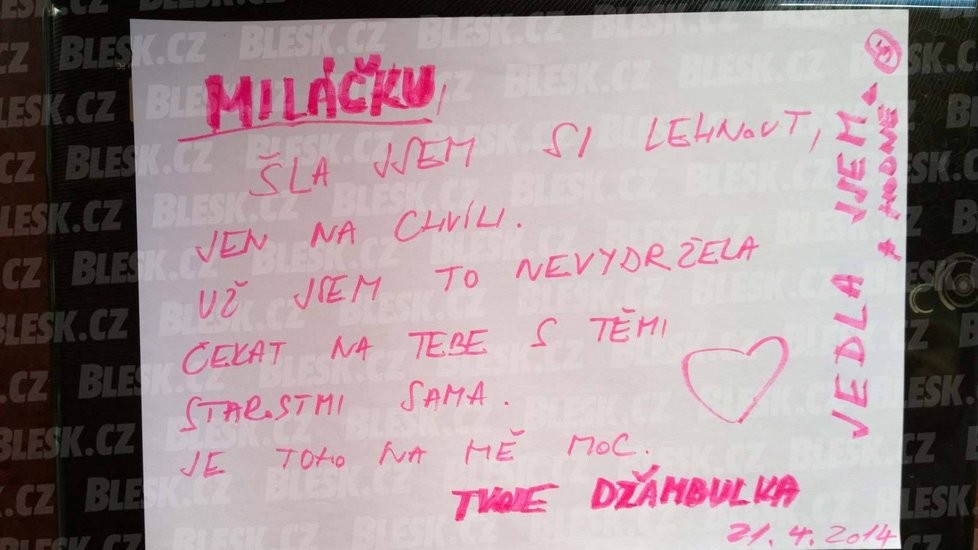 MILÁČKU,
ŠLA JSEM SI LEHNOUT,
JEN NA CHVÍLI.
UŽ JSEM TO NEVYDRŽELA
ČEKAT NA TEBE S TĚMI
STAROSTMI SAMA.
JE TOHO NA MĚ MOC.
TVOJE DŽAMBULKA
21. 4. 2014
JEDLA JSEM
A HODNĚ
BLESK.CZ